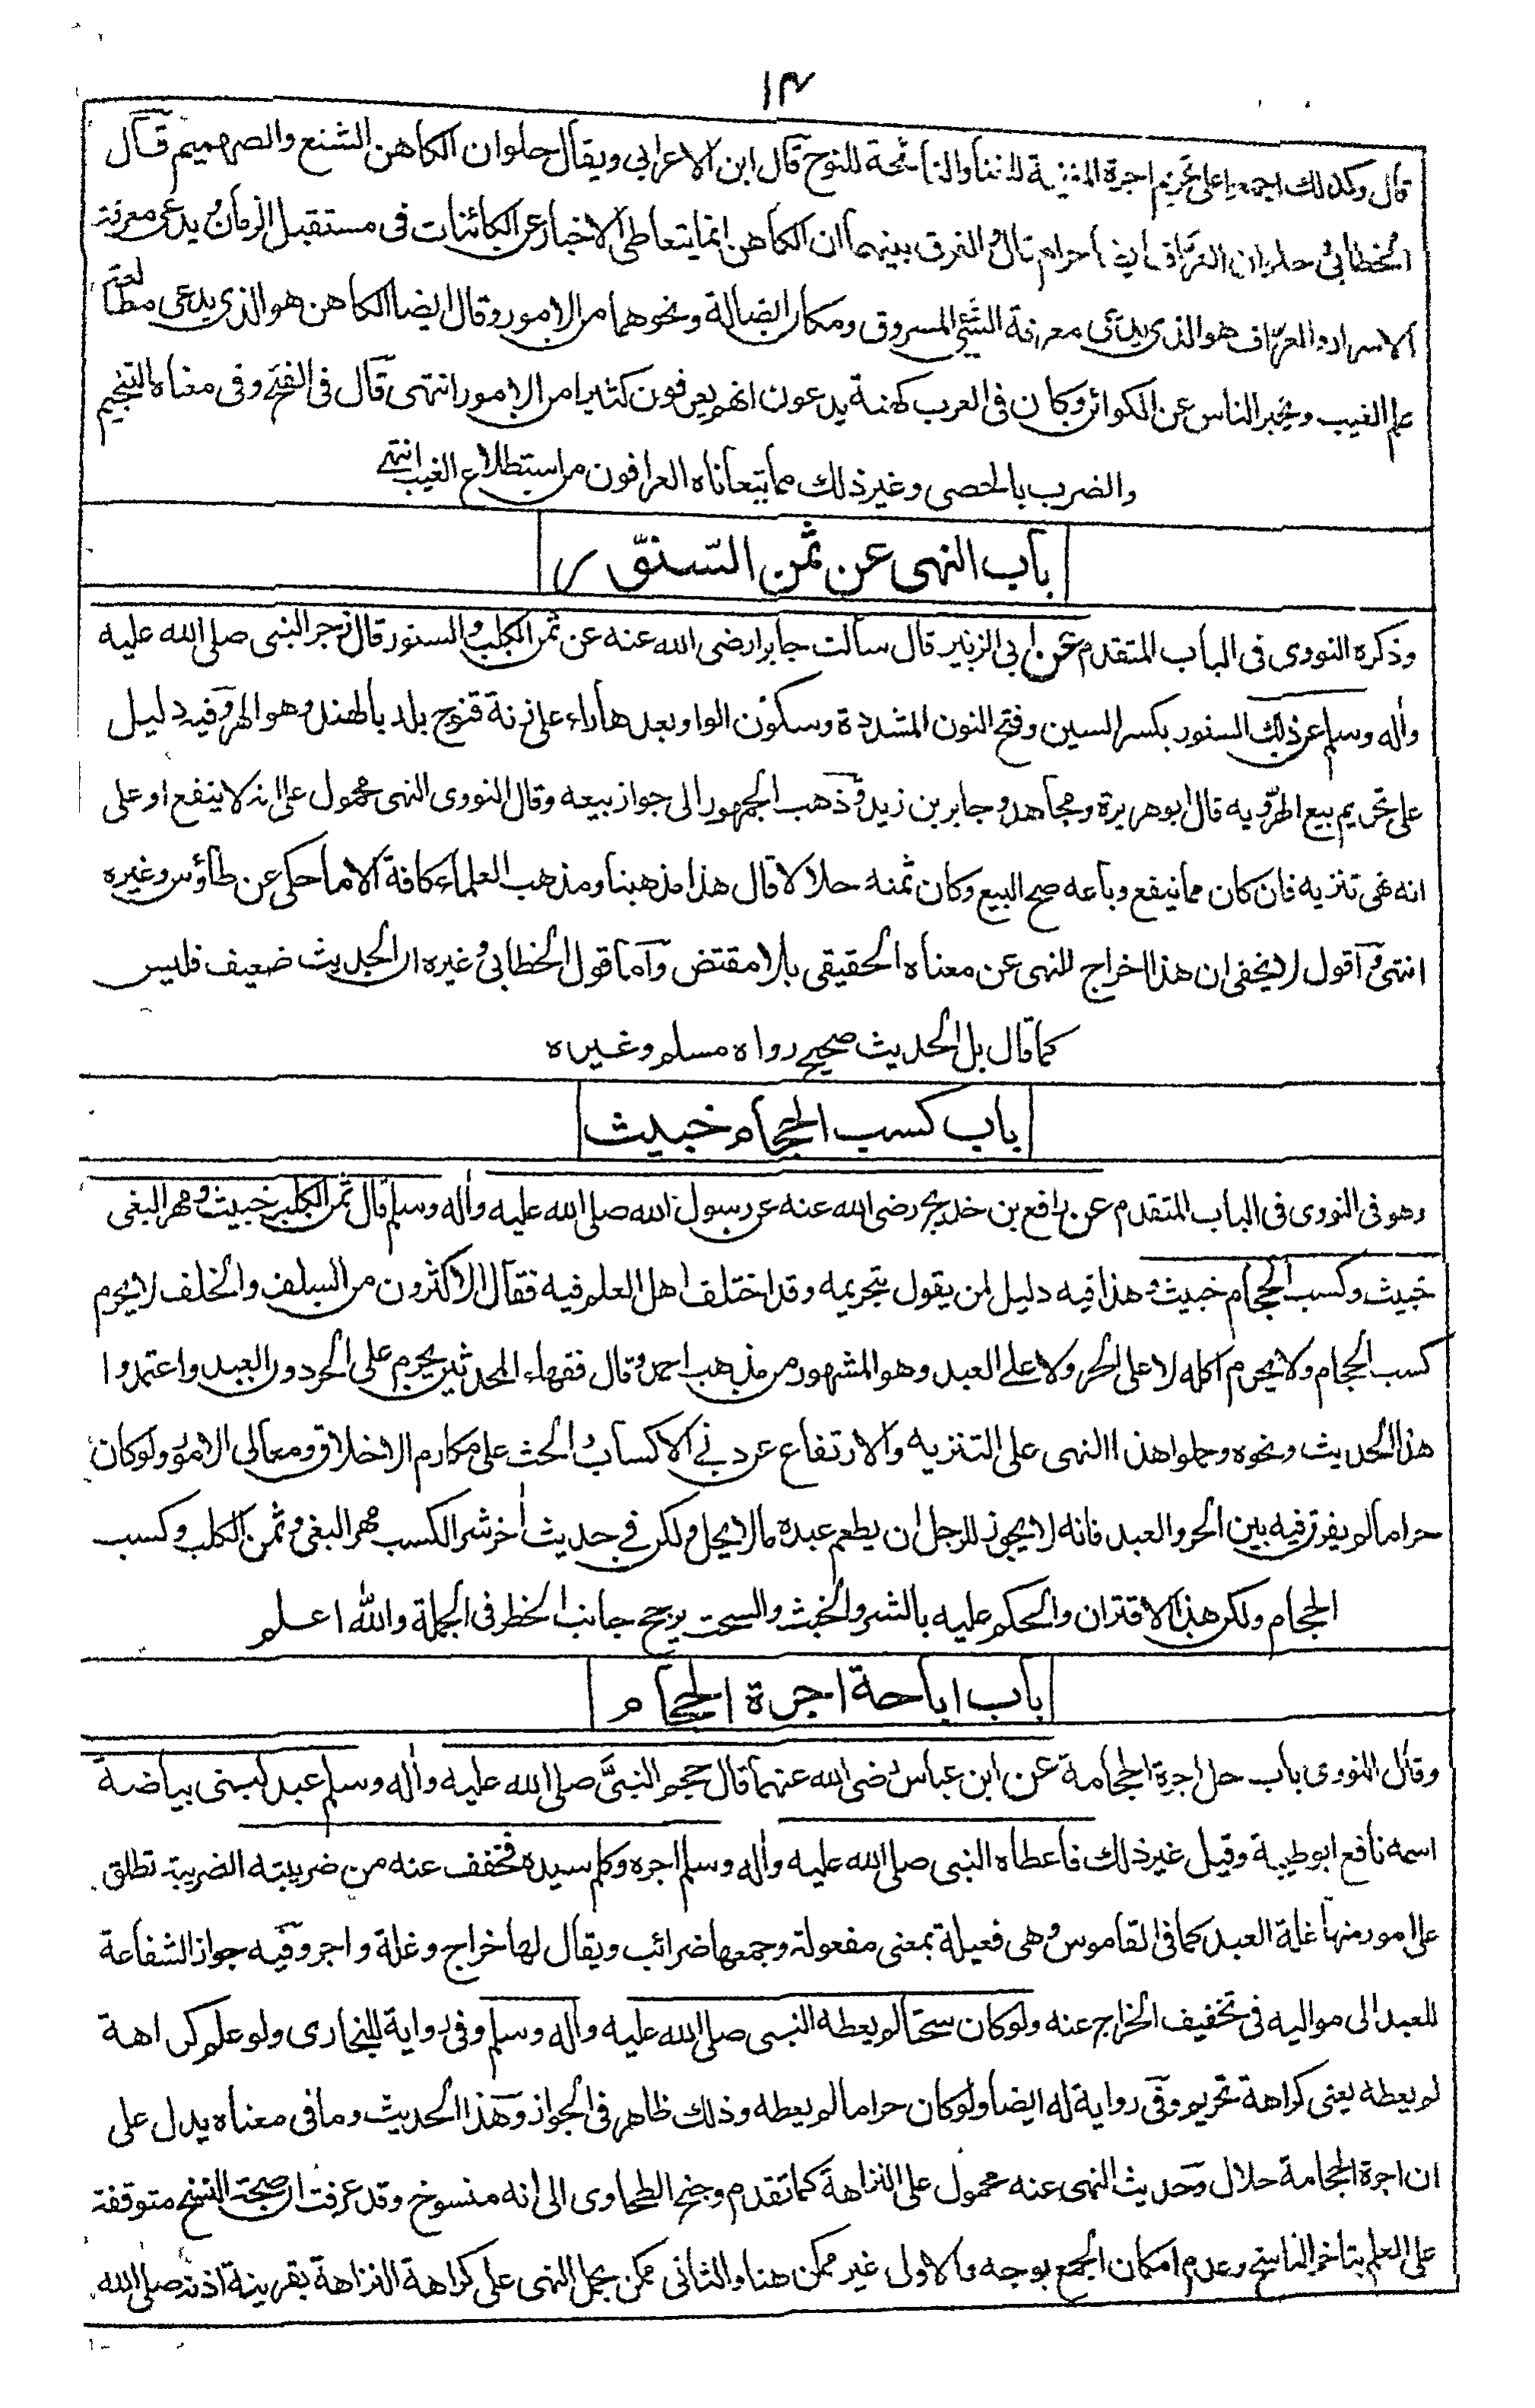 ١٣
قال وكذلك اجمعوا على تحريم اجرة المغنية للغناء والنائحة للنوح قال ابن الاعرابي ويقال حلوان الكاهن الشنع والصهميم قال
الخطابي حلوان العراف ايضا حرام قال والفرق بينهما ان الكاهن انما يتعاطى الاخبار عن الكائنات فى مستقبل الزمان ويدعى معرفة
الاسرار والعراف هو الذى يدعى معرفة الشئ المسروق ومكان الضالة ونحوهما من الامور وقال ايضا الكاهن هو الذى يدعى مطالعة
علم الغيب ويخبر الناس عن الكوائن وكان فى العرب كهنة يدعون انهم يعرفون كثيرا من الامور انتهى قال فى الفتح وفى معناه التنجيم
والضرب بالحصى وغير ذلك مما يتعاناه العرافون من استطلاع الغيب انتهى
باب النهى عن ثمن السّنّور
وذكره النووى فى الباب المتقدم عن ابى الزبير قال سألت جابرا رضى الله عنه عن ثمن الكلب والسنور قال زجر النبى صلى الله عليه
وأله وسلم عن ذلك السنور بكسر السين وفتح النون المشددة وسكون الواو بعدها راء على زنة قنوج بلد بالهند وهو الهر وفيه دليل
على تحريم بيع الهر وبه قال ابوهريرة ومجاهد وجابر بن زيد وذهب الجمهور الى جواز بيعه وقال النووى النهى محمول على انه لا ينفع او على
انه نهى تنزيه فان كان مما ينفع وباعه صح البيع وكان ثمنه حلالا قال هذا مذهبنا ومذهب العلماء كافة الا ما حكى عن طاؤس وغيره
انتهى واقول لا يخفى ان هذا اخراج للنهى عن معناه الحقيقى بلا مقتض واما قول الخطابى وغيره ان الحديث ضعيف فليس
كما قال بل الحديث صحيح رواه مسلم وغيره
باب كسب الحجام خبيث
وهو فى النووى فى الباب المتقدم عن رافع بن خديج رضى الله عنه عن رسول الله صلى الله عليه وأله وسلم قال ثمن الكلب خبيث ومهر البغى
خبيث وكسب الحجام خبيث هذا فيه دليل لمن يقول بتحريمه وقد اختلف اهل العلم فيه فقال الاكثرون من السلف والخلف لا يحرم
كسب الحجام ولا يحرم اكله لا على الحر ولا على العبد وهو المشهور من مذهب احمد وقال فقهاء المحدثين يحرم على الحر دون العبد واعتمدوا
هذا الحديث ونحوه وحملوا هذا النهى على التنزيه والارتفاع عن دنئ الاكساب والحث على مكارم الاخلاق ومعالى الامور ولو كان
حراما لم يفرق فيه بين الحر والعبد فانه لا يجوز للرجل ان يطعم عبده ما لا يحل ولكن فى حديث أخر شر الكسب مهر البغى وثمن الكلب وكسب
الحجام ولكن هذا الاقتران والحكم عليه بالشر والخبث والسحت يرجح جانب الحظر فى الجملة والله اعلم
باب اباحة اجرة الحجام
وقال النووى باب حل اجرة الحجامة عن ابن عباس رضى الله عنهما قال حجم النبى صلى الله عليه وأله وسلم عبد لبنى بياضة
اسمه نافع ابو طيبة وقيل غير ذلك فاعطاه النبى صلى الله عليه وأله وسلم اجره وكلم سيده فخفف عنه من ضريبته الضريبة تطلق
على امور منها غلة العبد كما فى القاموس وهى فعيلة بمعنى مفعولة وجمعها ضرائب ويقال لها خراج وغلة واجر وفيه جواز الشفاعة
للعبد الى مواليه فى تخفيف الخراج عنه ولو كان سحتا لم يعطه النبى صلى الله عليه وأله وسلم وفى رواية للبخارى ولو علم كراهة
لم يعطه يعنى كراهة تحريم وفى رواية له ايضا ولو كان حراما لم يعطه وذلك ظاهر فى الجواز وهذا الحديث وما فى معناه يدل على
ان اجرة الحجامة حلال وحديث النهى عنه محمول على النزاهة كما تقدم وجنح الطحاوى الى انه منسوخ وقد عرفت ان صحة النسخ متوقفة
على العلم بتاخر الناسخ وعدم امكان الجمع بوجه والاول غير ممكن هنا والثانى ممكن بحمل النهى على كراهة النزاهة بقرينة اذنه صلى الله